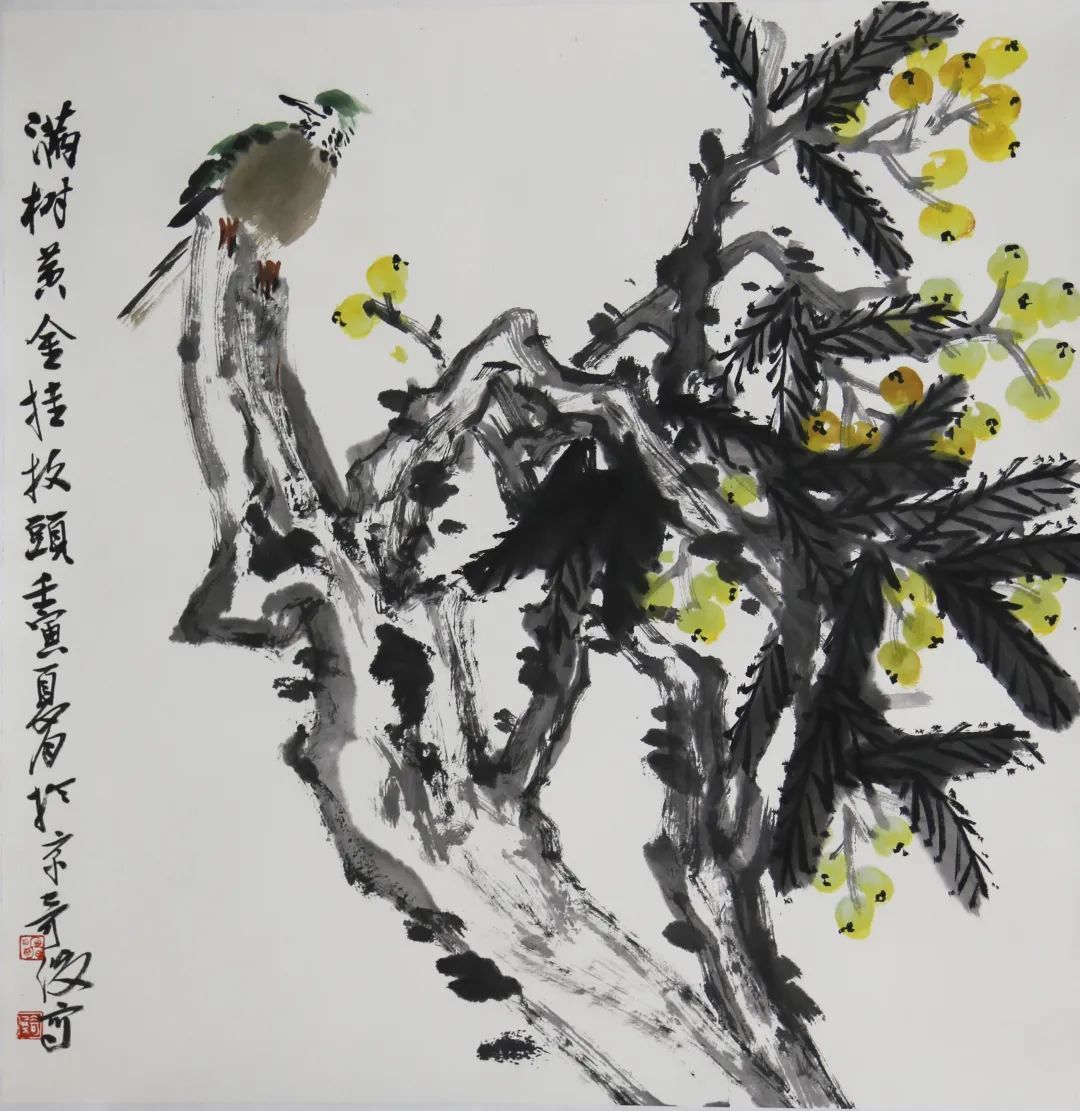 满树黄金挂枝頭壬寅夏月於京奇微写